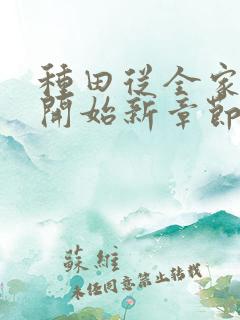 種田從全家
開始新章節
蘇維
未經同意禁止轉載